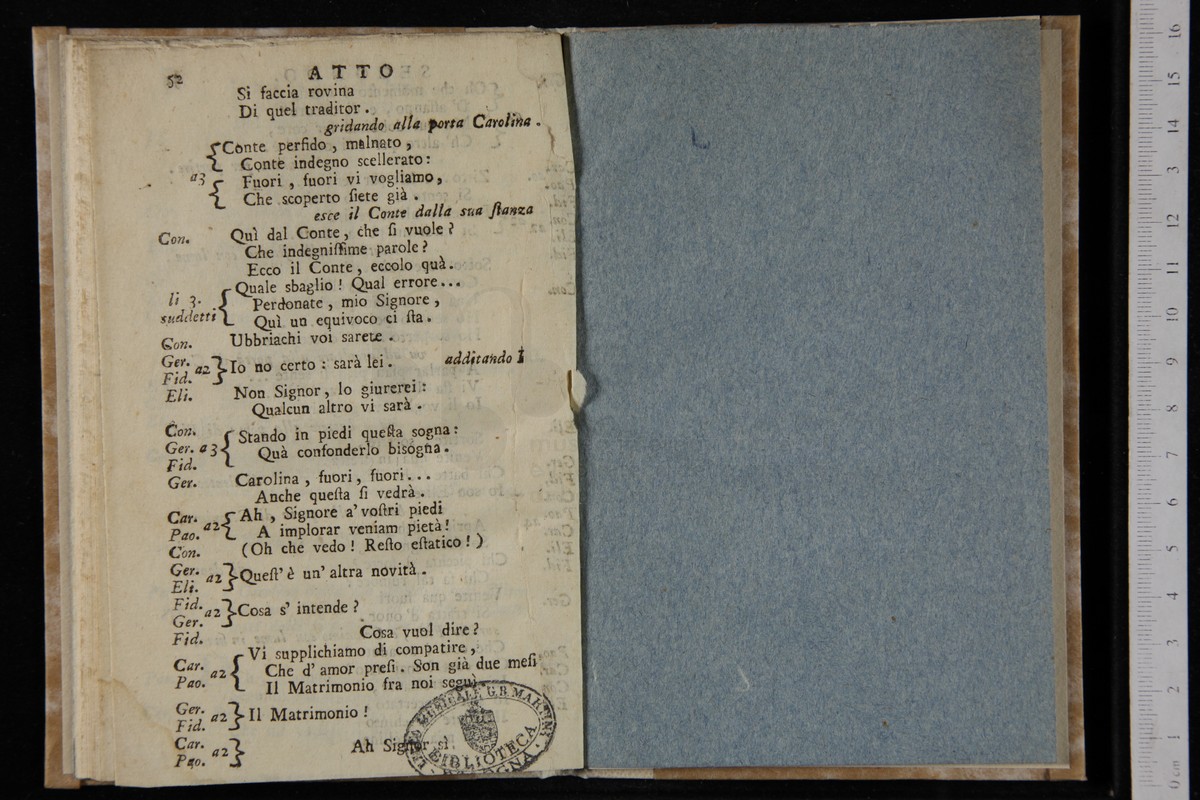 52 ATTO
Sì faccia rovina
Di quel traditor.
gridando alla porta Carolina.
Conte perfido, malnato,
Conte indegno scellerato:
a3
Fuori, fuori vi vogliamo,
Che scoperto ſiete già.
esce il Conte dalla sua ſtanza
Con. Quì dal Conte, che ſi vuole?
Che indegniſſime parole?
Ecco il Conte, eccolo quà.
Quale sbaglio! Qual errore...
li 3. Perdonate, mio Signore,
suddetti Quì un equivoco ci ſta.
Con. Ubbriachi voi sarete.
Ger. a2 Io no certo: sarà lei. additando
Fid.
Eli. Non Signor, lo giurerei:
Qualcun altro vi sarà.
Con. Stando in piedi queſta sogna:
Ger. a3 Quà confonderlo bisogna.
Fid.
Ger. Carolina, fuori, fuori...
Anche queſta ſi vedrà.
Car. a2 Ah, Signore a' voſtri piedi
Pao. A implorar veniam pietà!
Con. (Oh che vedo! Reſto eſtatico!)
Ger. a2 Queſt' è un' altra novità.
Eli.
Fid. a2 Cosa s' intende?
Ger.
Fid. Cosa vuol dire?
Vi supplichiamo di compatire,
Car. a2 Che d' amor preſi. Son già due meſi
Pao. Il Matrimonio fra noi seguì
Ger. a2 Il Matrimonio!
Fid.
Car. a2 Ah Signor sì.
Pao.
MUSICALE G.B. MARTINI
BIBLIOTECA
BOLOGNA
0 cm 1 2 3 4 5 6 7 8 9 10 11 12 13 14 15 16